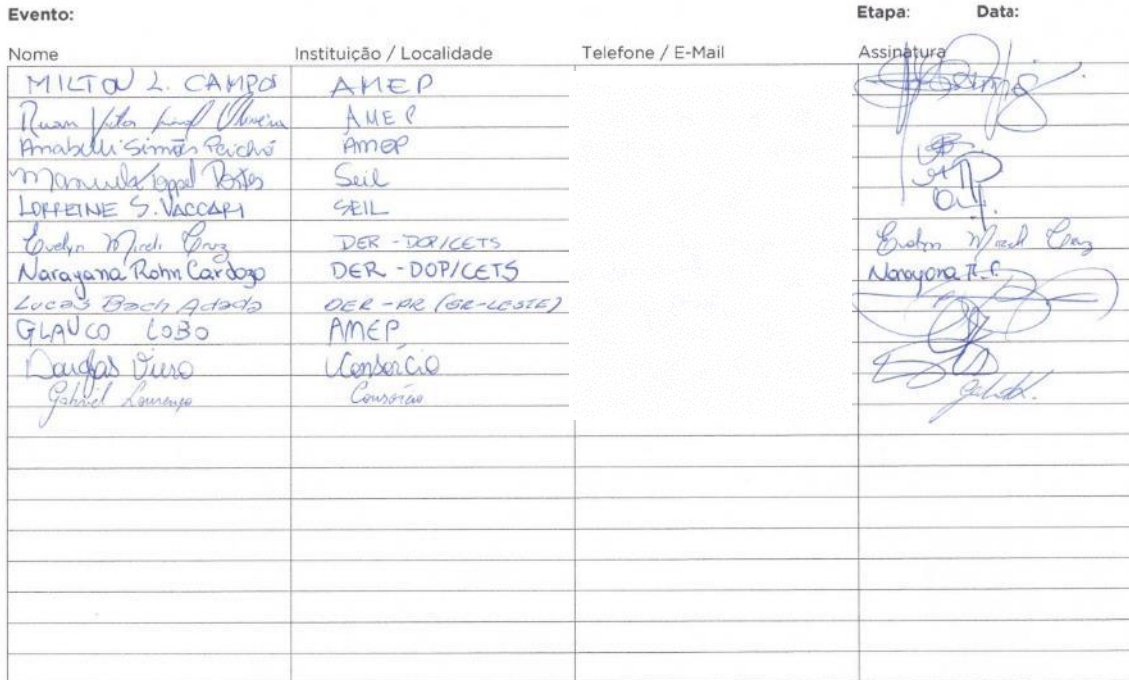 Evento: Etapa: Data:
Nome Instituição / Localidade Telefone / E-Mail Assinatura
MILTON L. CAMPOS AMEP
Ruan Victor Oliveira AMEP
Anabelli Simões Peichó AMEP
Manuela Toppel Portes Seil
LORREINE S. VACCARI SEIL
Evelyn Mireli Cruz DER - DOP/CETS Evelyn Cruz
Narayana Rohn Cardozo DER - DOP/CETS Narayana R. C.
Lucas Bach Adada DER - PR (GR-LESTE)
GLAUCO LOBO AMEP
Douglas Viero Consórcio
Gabriel Lourenço Consórcio